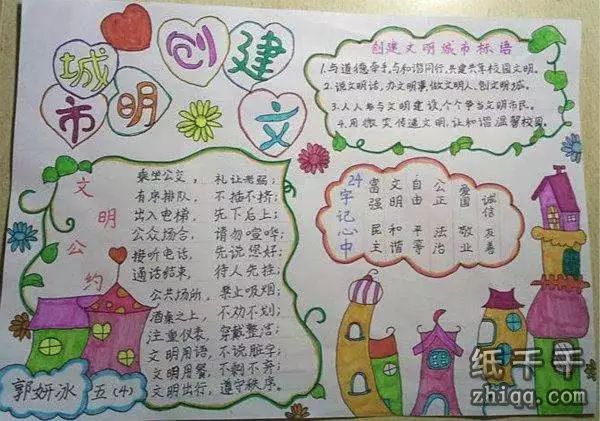 创建
文明
城市
创建文明城市标语
1.与道德牵手,与和谐同行,共建共享校园文明。
2.说文明话,办文明事,做文明人,创文明城。
3.人人参与文明建设,个个争当文明市民。
4.用微笑传递文明,让和谐温馨校园。
文明公约
乘坐公交,礼让老弱;
有序排队,不插不挤;
出入电梯,先下后上;
公众场合,请勿喧哗;
接听电话,先说您好;
通话结束,待人先挂;
公共场所,禁止吸烟;
酒桌之上,不劝不划;
注重仪表,穿戴整洁;
文明用语,不说脏字;
文明用餐,不剩不弃;
文明出行,遵守秩序;
24字记心中
富强 文明 自由 公正 爱国 诚信
民主 和谐 平等 法治 敬业 友善
郭妍冰 五(4)
纸千千
zhiqq.com